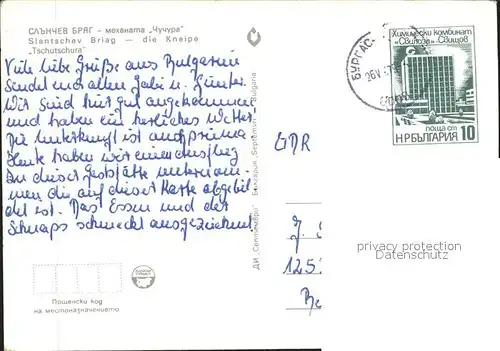 СЛЪНЧЕВ БРЯГ – механата „Чучура“
Slantschev Briag — die Kneipe
„Tschutschura“
Viele liebe Grüße aus Bulgarien
senden euch allen Gabi u. Günter.
Wir sind hier gut angekommen
und haben ein herrliches Wetter.
Die Unterkunft ist auch prima
Heute haben wir einen Ausflug
zu dieser Gaststätte unternom-
men die auf dieser Karte abgebil
det ist. Das Essen und der
Schnaps schmeckt ausgezeichnet
Пощенски код
на местоназначението
ДИ „Септември“ България „Septemvri“ Bulgaria
DDR
БУРГАС
Химически комбинат
„Свилоза“ – Свищов
поща ст 10
НР БЪЛГАРИЯ
J.
125
Be
privacy protection
Datenschutz